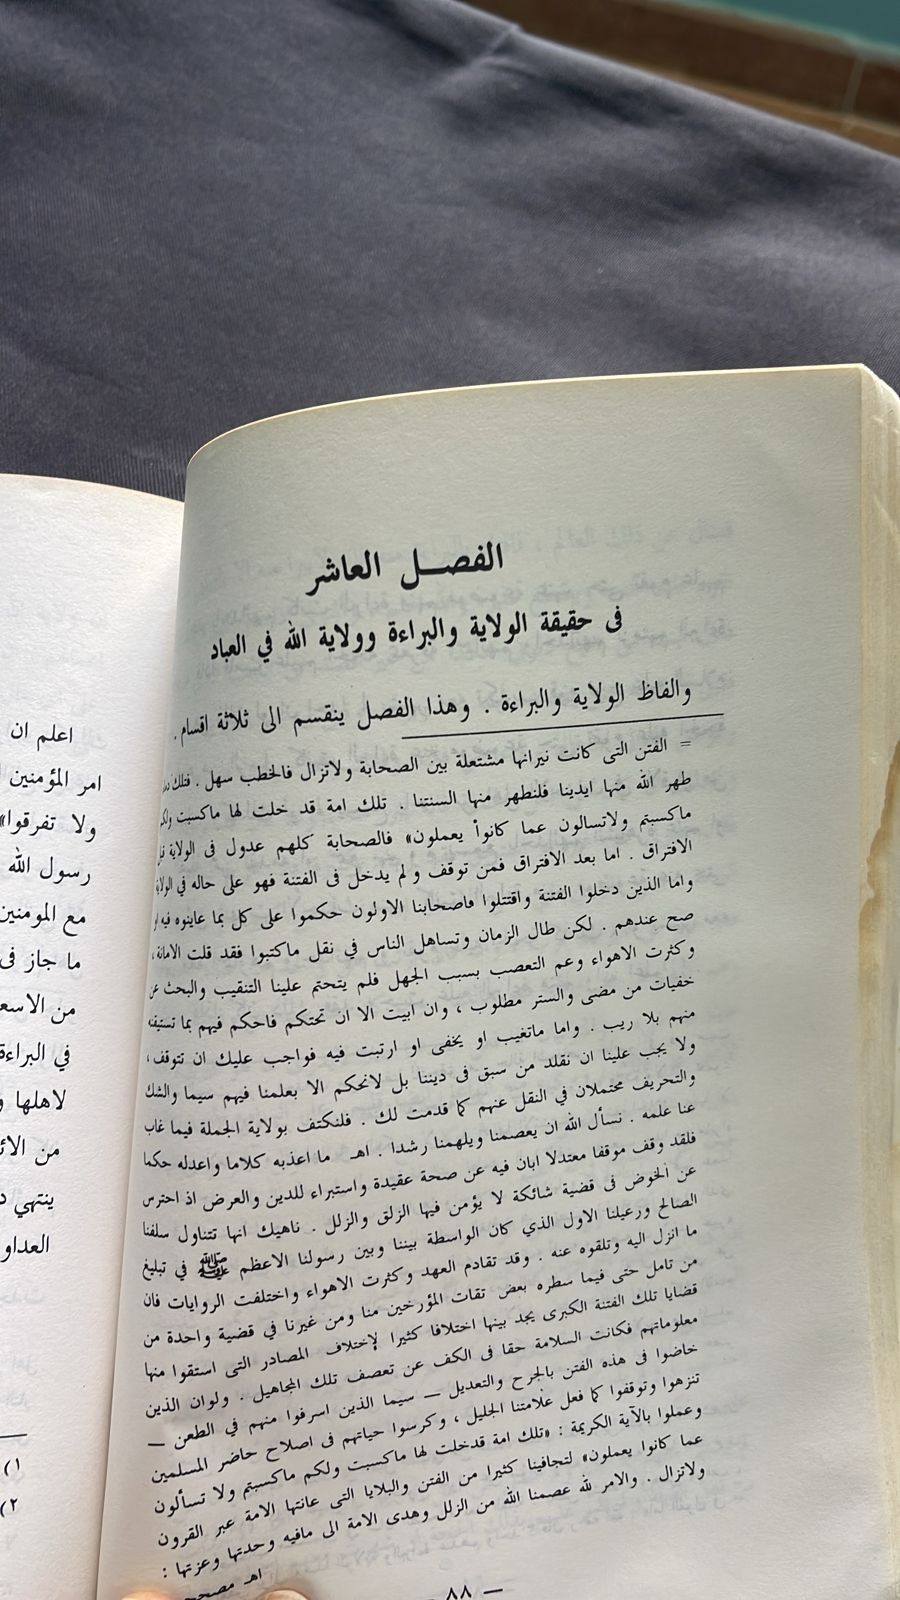 الفصل العاشر
فى حقيقة الولاية والبراءة وولاية الله في العباد
والفاظ الولاية والبراءة . وهذا الفصل ينقسم الى ثلاثة اقسام .
= الفتن التى كانت نيرانها مشتعلة بين الصحابة ولاتزال فالخطب سهل . فتلك
طهر الله منها ايدينا فلنطهر منها السنتنا . تلك امة قد خلت لها ماكسبت ولكم
ماكسبتم ولاتسالون عما كانوأ يعملون» فالصحابة كلهم عدول فى الولاية قبل
الافتراق . اما بعد الافتراق فمن توقف ولم يدخل فى الفتنة فهو على حاله في الولاية
واما الذين دخلوا الفتنة واقتتلوا فاصحابنا الاولون حكموا على كل بما عاينوه فيه او
صح عندهم . لكن طال الزمان وتساهل الناس في نقل ماكتبوا فقد قلت الامانة ،
وكثرت الاهواء وعم التعصب بسبب الجهل فلم يتحتم علينا التنقيب والبحث عن
خفيات من مضى والستر مطلوب ، وان ابيت الا ان تحتكم فاحكم فيهم بما تستيقنه
منهم بلا ريب . واما ماتغيب او يخفى او ارتبت فيه فواجب عليك ان تتوقف ،
ولا يجب علينا ان نقلد من سبق فى ديننا بل لانحكم الا بعلمنا فيهم سيما والشك
والتحريف محتملان في النقل عنهم كما قدمت لك . فلنكتف بولاية الجملة فيما غاب
عنا علمه . نسأل الله ان يعصمنا ويلهمنا رشدا . اهـ ما اعذبه كلاما واعدله حكما
فلقد وقف موقفا معتدلا ابان فيه عن صحة عقيدة واستبراء للدين والعرض اذ احترس
عن الخوض فى قضية شائكة لا يؤمن فيها الزلق والزلل . ناهيك انها تتناول سلفنا
الصالح ورعيلنا الاول الذي كان الواسطة بيننا وبين رسولنا الاعظم ﷺ في تبليغ
ما انزل اليه وتلقوه عنه . وقد تقادم العهد وكثرت الاهواء واختلفت الروايات فان
من تامل حتى فيما سطره بعض تقات المؤرخين منا ومن غيرنا في قضية واحدة من
قضايا تلك الفتنة الكبرى يجد بينها اختلافا كثيرا لإختلاف المصادر التى استقوا منها
معلوماتهم فكانت السلامة حقا فى الكف عن تعصف تلك المجاهيل . ولوان الذين
خاضوا فى هذه الفتن بالجرح والتعديل — سيما الذين اسرفوا منهم في الطعن —
تنزهوا وتوقفوا كما فعل علامتنا الجليل ، وكرسوا حياتهم فى اصلاح حاضر المسلمين
وعملوا بالآية الكريمة : «تلك امة قدخلت لها ماكسبت ولكم ماكسبتم ولا تسألون
عما كانوا يعملون» لتجافينا كثيرا من الفتن والبلايا التى عانتها الامة عبر القرون
ولاتزال . والامر لله عصمنا الله من الزلل وهدى الامة الى مافيه وحدتها وعزتها :
اهـ مصححه
— ٨٨ —
اعلم ان
امر المؤمنين
ولا تفرقوا»
رسول الله
مع المومنين
ما جاز فى
من الاسعـ
في البراءة
لاهلها و
من الائـ
ينتهي
العداو
١)
٢)